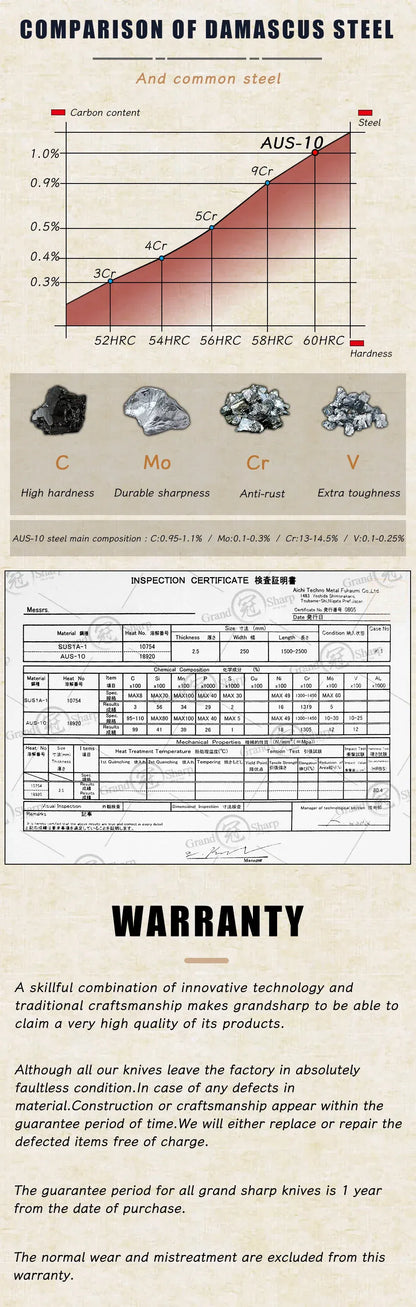 COMPARISON OF DAMASCUS STEEL
And common steel
Carbon content
Steel
AUS-10
1.0%
9Cr
0.9%
5Cr
0.5%
4Cr
0.4%
3Cr
0.3%
52HRC 54HRC 56HRC 58HRC 60HRC
Hardness
C Mo Cr V
High hardness Durable sharpness Anti-rust Extra toughness
AUS-10 steel main composition : C:0.95-1.1% / Mo:0.1-0.3% / Cr:13-14.5% / V:0.1-0.25%
INSPECTION CERTIFICATE 検査証明書
Aichi Techno Metal Fukaumi Co.,Ltd.
Messrs.
Certificate No. 発行番号 0805
Date 発行日
Material 鋼種 Heat No. 溶解番号 Size 寸法 (mm) Condition 納入状態 Case No
Thickness 厚さ Width 幅 Length 長さ
SUS1A-1 10754
AUS-10 18920
2.5 250 1500-2500
Chemical Composition 化学成分 (%)
Material 鋼種 Heat No 溶解番号 Item 項目 C Si Mn P S Cu Ni Cr Mo V AL
x100 x100 x100 x1000 x1000 x100 x100 x100 x100 x100 x1000
SUS1A-1 10754 Spec. 規格 MAX8 MAX70 MAX100 MAX40 MAX30 MAX 49 1300-1450 MAX 60
Results 成績 3 56 34 29 2 16 1319 5
AUS-10 18920 Spec. 規格 95-110 MAX80 MAX100 MAX 40 MAX 5 MAX 49 1300-1450 10-30 10-25
Results 成績 99 41 39 26 1 1305 12 12
Mechanical Properties 機械的性質
Heat No 溶解番号 Size 寸法 Items 項目 Heat Treatment Temperature 熱処理温度(℃) Tension Test 引張試験
Thickness 厚さ 1st Quenching 焼入れ 2st Quenching 焼入れ Tempering 焼きもどし Yield Point 降伏点 Tensile Strength 引張強さ
Spec. 規格
10754 Results 成績
18920 Results 成績
Visual Inspection 外観検査 Dimensional Inspection 寸法検査 Manager of technological section 技術部
Remarks 記事
Manager
Grand 冠 Sharp
WARRANTY
A skillful combination of innovative technology and
traditional craftsmanship makes grandsharp to be able to
claim a very high quality of its products.
Although all our knives leave the factory in absolutely
faultless condition.In case of any defects in
material.Construction or craftsmanship appear within the
guarantee period of time.We will either replace or repair the
defected items free of charge.
The guarantee period for all grand sharp knives is 1 year
from the date of purchase.
The normal wear and mistreatment are excluded from this
warranty.